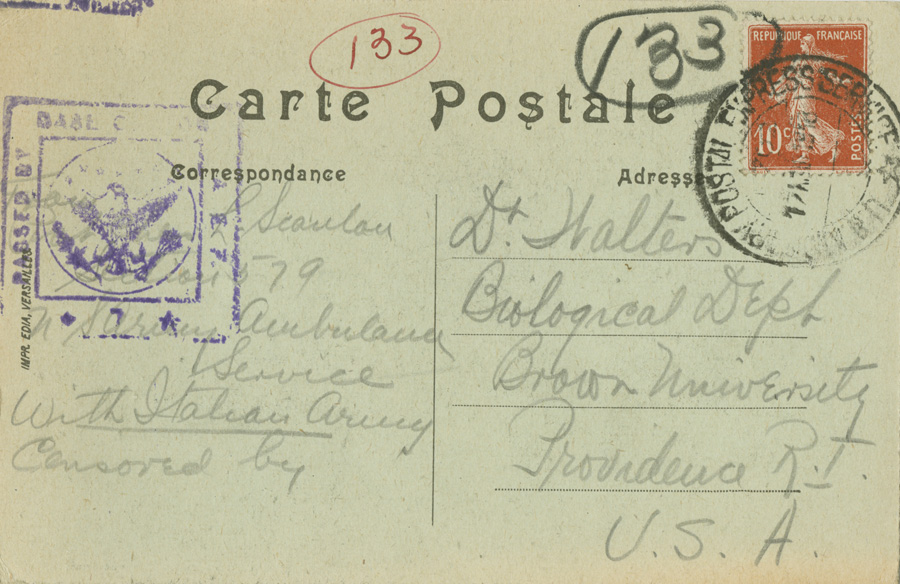 133
133
REPUBLIQUE FRANÇAISE
10c
POSTES
POSTAL EXPRESS SERVICE
Carte Postale
PASSED BY
BASE
A.E.F.
7
Correspondance
Adresse
From
L Scanlon
Section 579
U S Army Ambulance
Service
With Italian Army
Censored by
Dr. Walters
Biological Dept
Brown University
Providence R.I.
U.S.A.
IMPR. EDIA, VERSAILLES